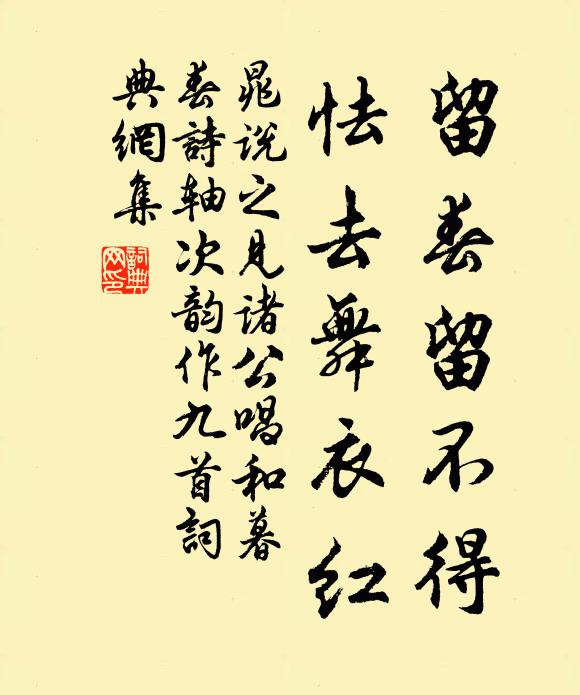 留春留不得
怯去舞衣红
晁说之见諸公唱和暮
春詩軸次韵作九首詞
典網集
詞典
网印